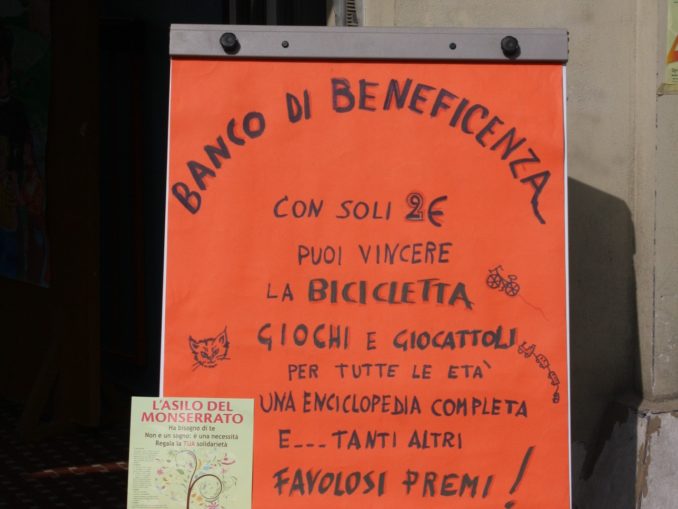 BANCO DI BENEFICENZA
CON SOLI 2€
PUOI VINCERE
LA BICICLETTA
GIOCHI E GIOCATTOLI
PER TUTTE LE ETA'
UNA ENCICLOPEDIA COMPLETA
E...TANTI ALTRI
FAVOLOSI PREMI!
L'ASILO DEL
MONSERRATO
Ha bisogno di te
Non è un sogno: è una necessità
Regala la TUA solidarietà